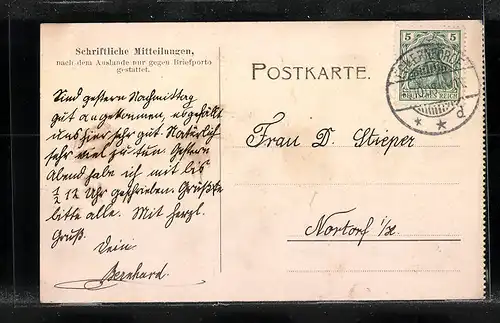 Schriftliche Mitteilungen,
nach dem Auslande nur gegen Briefporto
gestattet.
POSTKARTE.
5 5
Sind gestern Nachmittag
gut angekommen,
uns hier sehr gut. Natürlich
sehr viel zu tun. Gestern
Abend habe ich mit bis
1/2 12 Uhr geschrieben. Grüße
bitte alle. Mit herzl.
Gruß.
Dein
Bernhard.
Frau D. Stieper
Nortorf i/H.